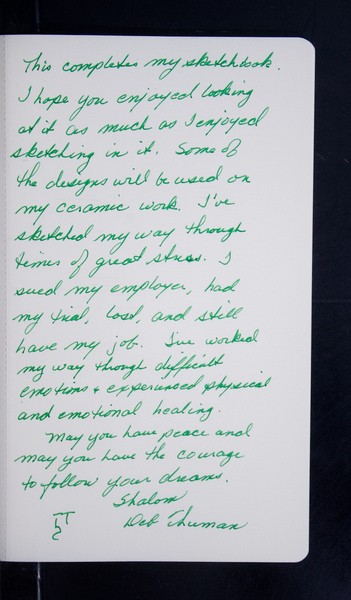 This completes my sketchbook.
I hope you enjoyed looking
at it as much as I enjoyed
sketching in it. Some of
the designs will be used on
my ceramic work. I've
sketched my way through
times of great stress. I
sued my employer, had
my trial, lost, and still
have my job. I've worked
my way though difficult
emotions & experienced physical
and emotional healing.
May you have peace and
may you have the courage
to follow your dreams.
Shalom
Deb Thuman